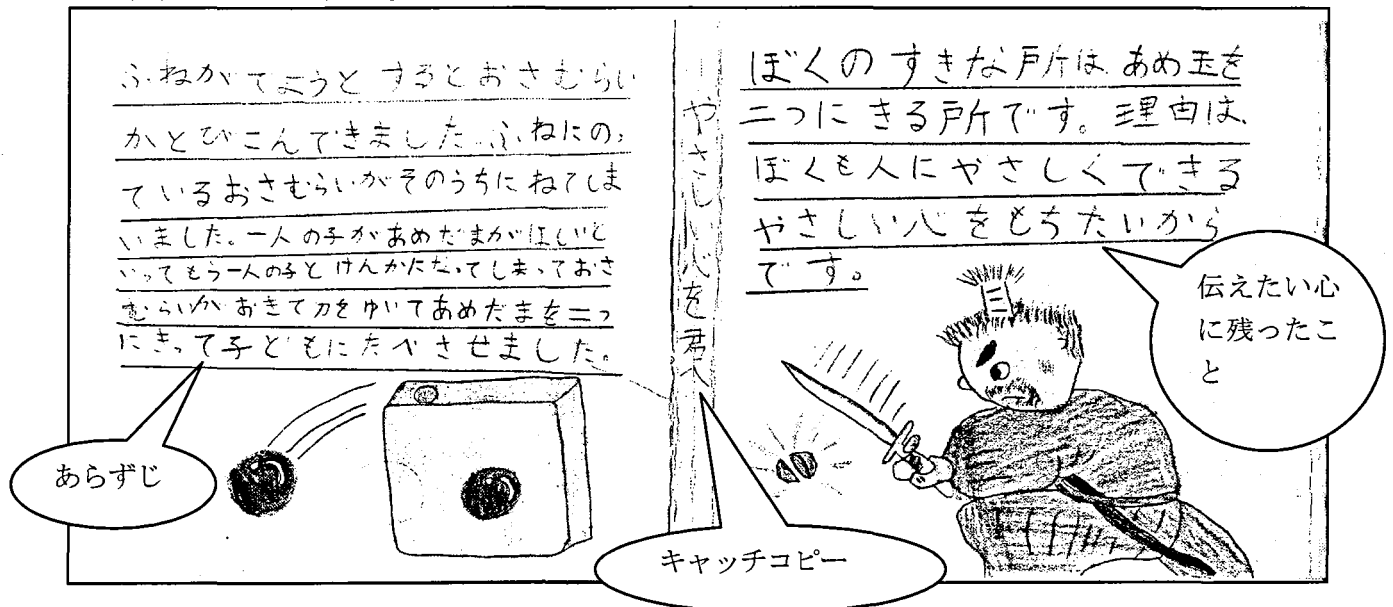 ふねがでようとするとおさむらい
がとびこんできました。ふねにのっ
ているおさむらいがそのうちにねてしま
いました。一人の子があめだまがほしいと
いってもう一人の子とけんかになってしまっておさ
むらいがおきて刀をぬいてあめだまを二つ
にきって子どもにたべさせました。
あらすじ
やさしい心を君へ
キャッチコピー
ぼくのすきな所は、あめ玉を
二つにきる所です。理由は、
ぼくも人にやさしくできる
やさしい心をもちたいから
です。
伝えたい心
に残ったこ
と